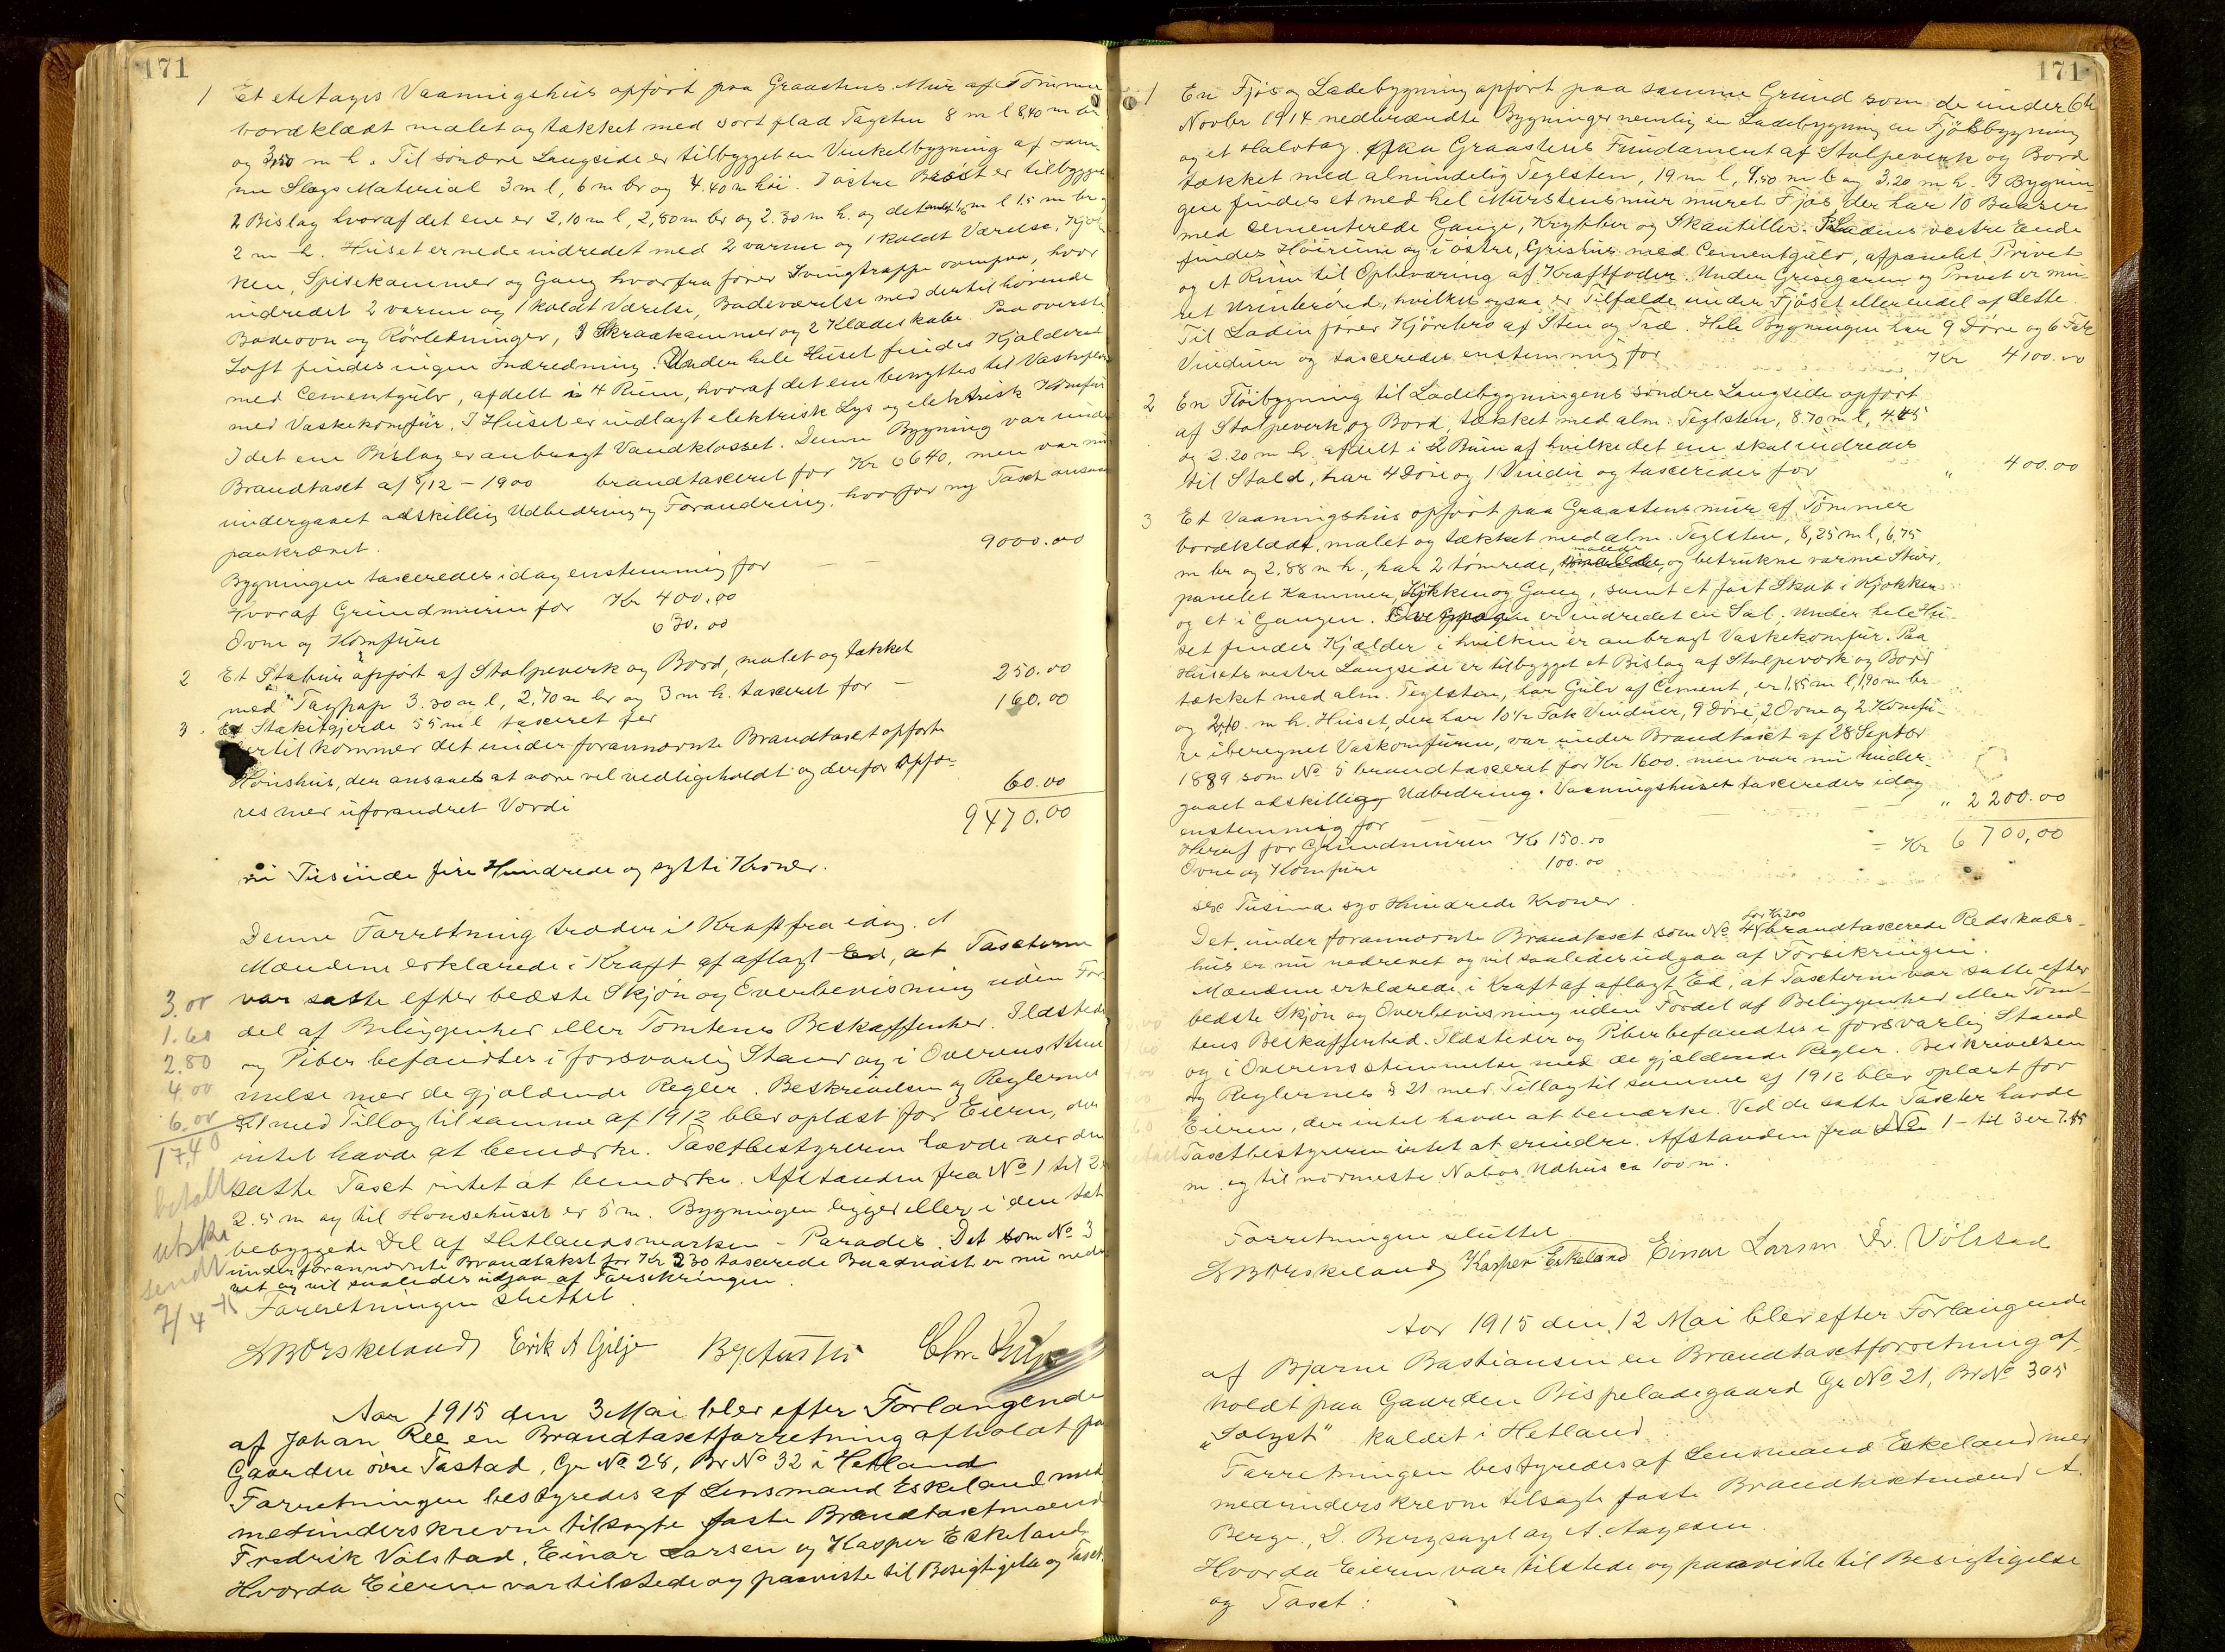 171
1 Et etetages Vaaningshus opført paa Graastens Mur af Tømmer
bordklædt malet og tækket med sort flad Tagsten 8 m l 8,40 m br
og 3,50 m h. Til søndre Langside er tilbygget en Vinkelbygning af sam-
me Slags Material 3 m l, 6 m br og 4.40 m høi. I østre Brøst er tilbygget
2 Bislag hvoraf det ene er 2,10 m l, 2,80 m br og 2.30 m h. og det andet 1,6 m l 1.5 m br og
2 m h. Huset er nede indredet med 2 varme og 1 koldt Værelse, Kjøk-
ken, Spisekammer og Gang hvorfra fører Svingtrappe ovenpaa, hvor
indredet 2 varme og 1 koldt Værelse, Badeværelse med dertil hørende
Badeovn og Rørledninger, 1 Skraakammer og 2 Klædeskabe. Paa øverste
Loft findes ingen Indredning. Under hele Huset findes Kjælderrum
med Cementgulv, afdelt i 4 Rum, hvoraf det ene benyttes til Vaskeri
med Vaskekomfur. I Huset er indlagt elektrisk Lys og elektrisk Komfur
I det ene Bislag er anbragt Vandklosset. Denne Bygning var under
Brandtaxt af 8/12 - 1900 brandtaxeret for Kr 6640, men var nu
undergaaet adskillig Udbedring og Forandring, hvorfor ny Taxt ansaaes
paakrævet.
Bygningen taxeredes idag enstemmig for — — 9000.00
Hvoraf Grundmuren for Kr 400.00
Ovne og Komfure 630.00
2 Et Stabur opført af Stolpeverk og Bord, malet og tækket
med Tagpap 3.30 m l, 2,70 m br og 3 m h. taxeret for — 250.00
3. Et Stakitgjerde 55 m l taxeret for 160.00
Hertil kommer det under forannævnte Brandtaxt opførte
Hønshus, der ansaaes at være vel vedligeholdt og derfor opfø-
res med uforandret Værdi 60.00
9470.00
ni Tusinde fire Hundrede og sytti Kroner.
Denne Forretning træder i Kraft fra idag. d
Mændene erklærede i Kraft af aflagt Ed, at Taxterne
3.00 var satte efter bedste Skjøn og Overbevisning uden For-
1.60 del af Beliggenhed eller Tomtens Beskaffenhed. Ildsteder
2.80 og Piber befandtes i forsvarlig Stand og i Overensstem-
4.00 melse med de gjældende Regler. Beskrivelsen og Reglernes
6.00 § 21 med Tillæg til samme af 1912 blev oplæst for Eieren, der
17,40 intet havde at bemærke. Taxtbestyreren havde ved den
betalt satte Taxt intet at bemærke. Afstanden fra No 1 til 2 er
2.5 m og til Hønsehuset er 5 m. Bygningen ligger eller i den tæt
utskr bebyggede Del af Hetlandsmarken - Parades. Det som No 3
sendt under forannævnte Brandtakst for Kr 230 taxerede Baadnaust er nu nedre-
vet og vil saaledes udgaa af Forsikringen.
7/4-15 Forretningen sluttet
LBOrskeland Erik A Gilje
Aar 1915 den 3 Mai blev efter Forlangende
af Johan Ree en Brandtaxtforretning afholdt paa
Gaarden øvre Tastad, Gr No 28, Br No 32 i Hetland
Forretningen bestyredes af Lensmand Eskeland med
medunderskrevne tilsagte faste Brandtaxtmænd
Fredrik Vølstad, Einar Larsen og Kasper Eskeland.
Hvorda Eieren var tilstede og paaviste til Besigtigelse og Taxt.
171
1 En Fjøs og Ladebygning opført paa samme Grund som de under 6te
Novbr 1914 nedbrændte Bygninger nemlig en Ladebygning en Fjøsbygning
og et Halvtag. Graastens Fundament af Stolpeverk og Bord
tækket med almindelig Teglsten, 19 m l, 9,50 m b og 3.20 m h. I Bygnin-
gen findes et med hel Murstensmur muret Fjøs, der har 10 Baaser
med cementerede Gange, Krybber og Skantiller. I Ladens vestre Ende
findes Høirum og i østre, Grishus med Cementgulv, afpanelet Privet
og et Rum til Opbevaring af Kraftfoder. Under Grisegaren og Privet er mu-
ret Urinbrønd, hvilket ogsaa er Tilfælde under Fjøset eller endel af dette
Til Laden fører Kjørebro af Sten og Træ. Hele Bygningen har 9 Døre og 6 Fak
Vinduer og taxeredes enstemmig for Kr 4100.00
2 En Fløibygning til Ladebygningens søndre Langside opført
af Stolpeverk og Bord, tækket med alm. Teglsten, 8.70 m l, 4.45
og 2.20 m h. afdelt i 2 Rum af hvilke det ene skal indredes
til Stald, har 4 Døre og 1 Vindu og taxeredes for " 400.00
3 Et Vaaningshus opført paa Graastensmur af Tømmer
bordklædt, malet og tækket med alm. Teglsten, 8,25 m l, 6,75
m br og 2,88 m h., har 2 tømrede, malede og betrukne varme Stuer,
panelet Kammer, Kjøkken og Gang, samt et fast Skab i Kjøkken
og et i Gangen. Ovenpaa er indredet en Sal. Under hele Hu-
set findes Kjælder i hvilken er anbragt Vaskekomfur. Paa
Husets vestre Langside er tilbygget et Bislag af Stolpeværk og Bord
tækket med alm. Teglsten, har Gulv af Cement, er 1,85 m l, 1,90 m br
og 2,10 m h. Huset, der har 10½ Fak Vinduer, 9 Døre, 2 Ovne og 2 Komfu-
re iberegnet Vaskomfuren, var under Brandtaxt af 28 Septbr
1889 som No 5 brandtaxeret for Kr 1600. men var nu under-
gaaet adskillig Udbedring. Vaaningshuset taxeredes idag
enstemmig for — — " 2200.00
Heraf for Grundmuren Kr 150.00 = Kr 6700,00
Ovne og Komfure 100.00
sex Tusinde syv Hundrede Kroner.
for Kr 200
Det under forannævnte Brandtaxt som No 4 brandtaxerede Redskabs-
hus er nu nedrevet og vil saaledes udgaa af Forsikringen.
Mændene erklærede i Kraft af aflagt Ed, at Taxterne var satte efter
bedste Skjøn og Overbevisning uden Fordel af Beliggenhed eller Tom-
tens Beskaffenhed. Ildsteder og Piber befandtes i forsvarlig Stand
og i Overensstemmelse med de gjældende Regler. Beskrivelsen
og Reglernes § 21 med Tillæg til samme af 1912 blev oplæst for
Eieren, der intet havde at bemærke. Ved de satte Taxter havde
Taxtbestyreren intet at erindre. Afstanden fra No 1 - til 3 er 7.45
m og til nærmeste Nabos Udhus ca 100 m.
Forretningen sluttet
LBOrskeland Kasper Eskeland Einar Larsen Fr. Vølstad
Aar 1915 den 12 Mai blev efter Forlangende
af Bjarne Bastiansen en Brandtaxtforretning af-
holdt paa Gaarden Bispeladegaard Gr No 21, Br No 305
"Solyst" kaldet i Hetland
Forretningen bestyredes af Lensmand Eskeland med
medunderskrevne tilsagte faste Brandtaxtmænd A.
Berge, D. Bergsagel og A. Aagesen.
Hvorda Eieren var tilstede og paaviste til Besigtigelse
og Taxt: